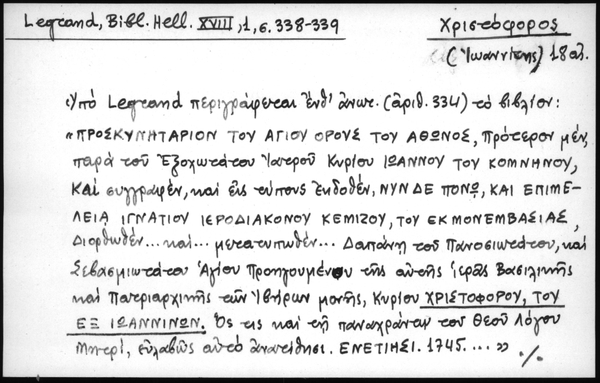 Legrand, Bibl. Hell. XVIII, 1, σ. 338-339
Χριστόφορος
(Ἰωαννίτης) 18 αἰ.
Ὑπὸ Legrand περιγράφεται ἔνθ' ἀνωτ. (ἀριθ. 334) τὸ βιβλίον:
«ΠΡΟΣΚΥΝΗΤΑΡΙΟΝ ΤΟΥ ΑΓΙΟΥ ΟΡΟΥΣ ΤΟΥ ΑΘΩΝΟΣ, Πρότερον μέν,
παρὰ τοῦ Ἐξοχωτάτου Ἰατροῦ Κυρίου ΙΩΑΝΝΟΥ ΤΟΥ ΚΟΜΝΗΝΟΥ,
Καὶ συγγραφέν, καὶ εἰς τύπους ἐκδοθέν, ΝΥΝ ΔΕ ΠΟΝῼ, ΚΑΙ ΕΠΙΜΕ-
ΛΕΙᾼ ΙΓΝΑΤΙΟΥ ΙΕΡΟΔΙΑΚΟΝΟΥ ΚΕΜΙΖΟΥ, ΤΟΥ ΕΚ ΜΟΝΕΜΒΑΣΙΑΣ,
Διορθωθέν... καὶ... μετατυπωθέν... Δαπάνῃ τοῦ Πανοσιωτάτου, καὶ
Σεβασμιωτάτου Ἁγίου Προηγουμένου τῆς αὐτῆς ἱερᾶς Βασιλικῆς
καὶ Πατριαρχικῆς τῶν Ἰβήρων μονῆς, Κυρίου ΧΡΙΣΤΟΦΟΡΟΥ, ΤΟΥ
ΕΞ ΙΩΑΝΝΙΝΩΝ. Ὅς τις καὶ τῇ παναχράντῳ τοῦ Θεοῦ Λόγου
Μητρί, εὐλαβῶς αὐτὸ ἀνατίθησι. ΕΝΕΤΙΗΣΙ. 1745. ... » ./.